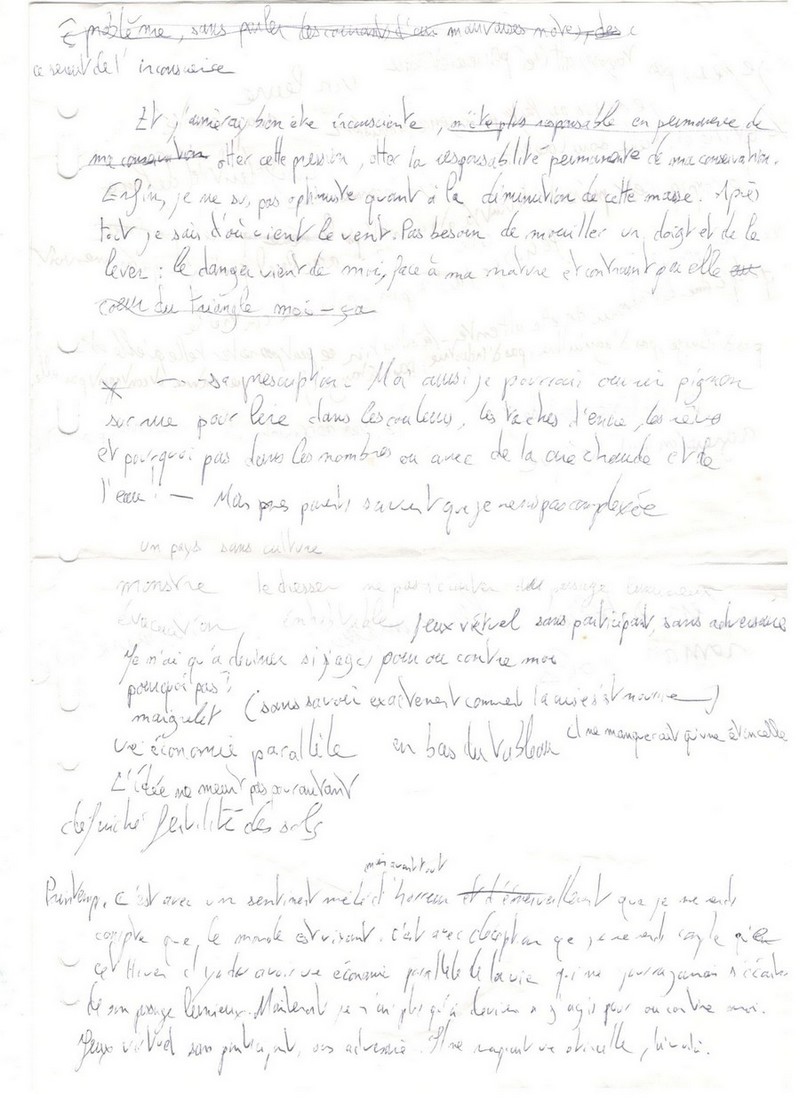 problème, sans parler des courants d'eau mauvaises notes, des
ce serait de l'inconscience
Et j'aimerais bien être inconsciente, n'être plus responsable en permanence de
ma conservation otter cette pression, otter la responsabilité permanente de ma conservation.
Enfin, je ne suis pas optimiste quant à la diminution de cette masse. Après
tout je sais d'où vient le vent. Pas besoin de mouiller un doigt et de le
lever : le danger vient de moi, face à ma nature et contraint par elle au
coeur du triangle moi - ça
* — sa prescription. Moi aussi je pourrais ouvrir pignon
sur rue pour lire dans les couleurs, les taches d'encre, les rêves
et pourquoi pas dans les nombres ou avec de la cire chaude et de
l'eau ! — Mes parents savent que je ne suis pas complexée
un pays sans culture
monstre le dresser ne pas s'écarter du passage
évacuation Jeux virtuel sans participant, sans adversaire
Je n'ai qu'à deviner si j'agis pour ou contre moi
pourquoi pas ?
maigrelet (sans savoir exactement comment la mise s'est nourrie)
une économie parallèle en bas du tableau il ne manquerait qu'une étincelle
L'idée ne meurt pas pour autant
défricher fertilité des sols
mais avant tout
Printemps. C'est avec un sentiment mêlé d'horreur et d'émerveillement que je me rends
compte que, le monde est vivant. c'est avec déception que je me rends compte qu'en
cet Hiver il y a une économie parallèle de la vie qui ne pourra jamais s'écarter
de son passage lumineux. Maintenant je n'ai plus qu'à deviner si j'agis pour ou contre moi.
Jeux virtuel sans participant, sans adversaire. Il ne manquait une étincelle,